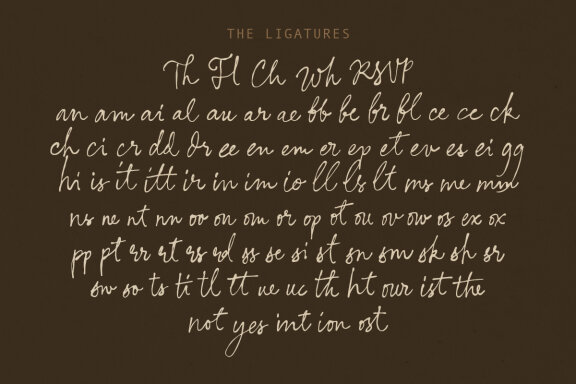 THE LIGATURES
Th Fl Ch Wh RSVP
an am ai al au ar ae bb be br bl ce ce ck
ch ci cr dd dr ee en em er ep et ev es ei gg
hi is it itt ir in im io ll ls lt ms me mm
ns ne nt nn oo on om or op ot ou ov ow os ex ox
pp pt rr rt rs rd ss se si st sn sm sk sh sr
sw so ts ti tl tt ue uc th ht our ist the
not yes int ion ost